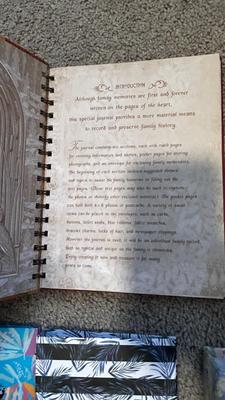 INTRODUCTION
Although family memories are first and forever
written on the pages of the heart,
this special journal provides a more material means
to record and preserve family history.
The journal contains six sections, each with pages
for entering information and stories, pocket pages for storing
photographs, and an envelope for enclosing family mementos.
The beginning of each section includes suggested themes
and topics to assist the family historian in filling out the
text pages. (These text pages may also be used to caption
the photos or identify other enclosed material.) The pocket pages
can hold both 4 x 6 photos or postcards. A variety of small
items can be placed in the envelopes, such as cards,
letters, ticket stubs, blue ribbons, fabric swatches,
bracelet charms, locks of hair, and newspaper clippings.
However the journal is used, it will be an individual family record,
both as typical and unique as the family it chronicles.
Enjoy creating it now and treasure it for many
years to come.